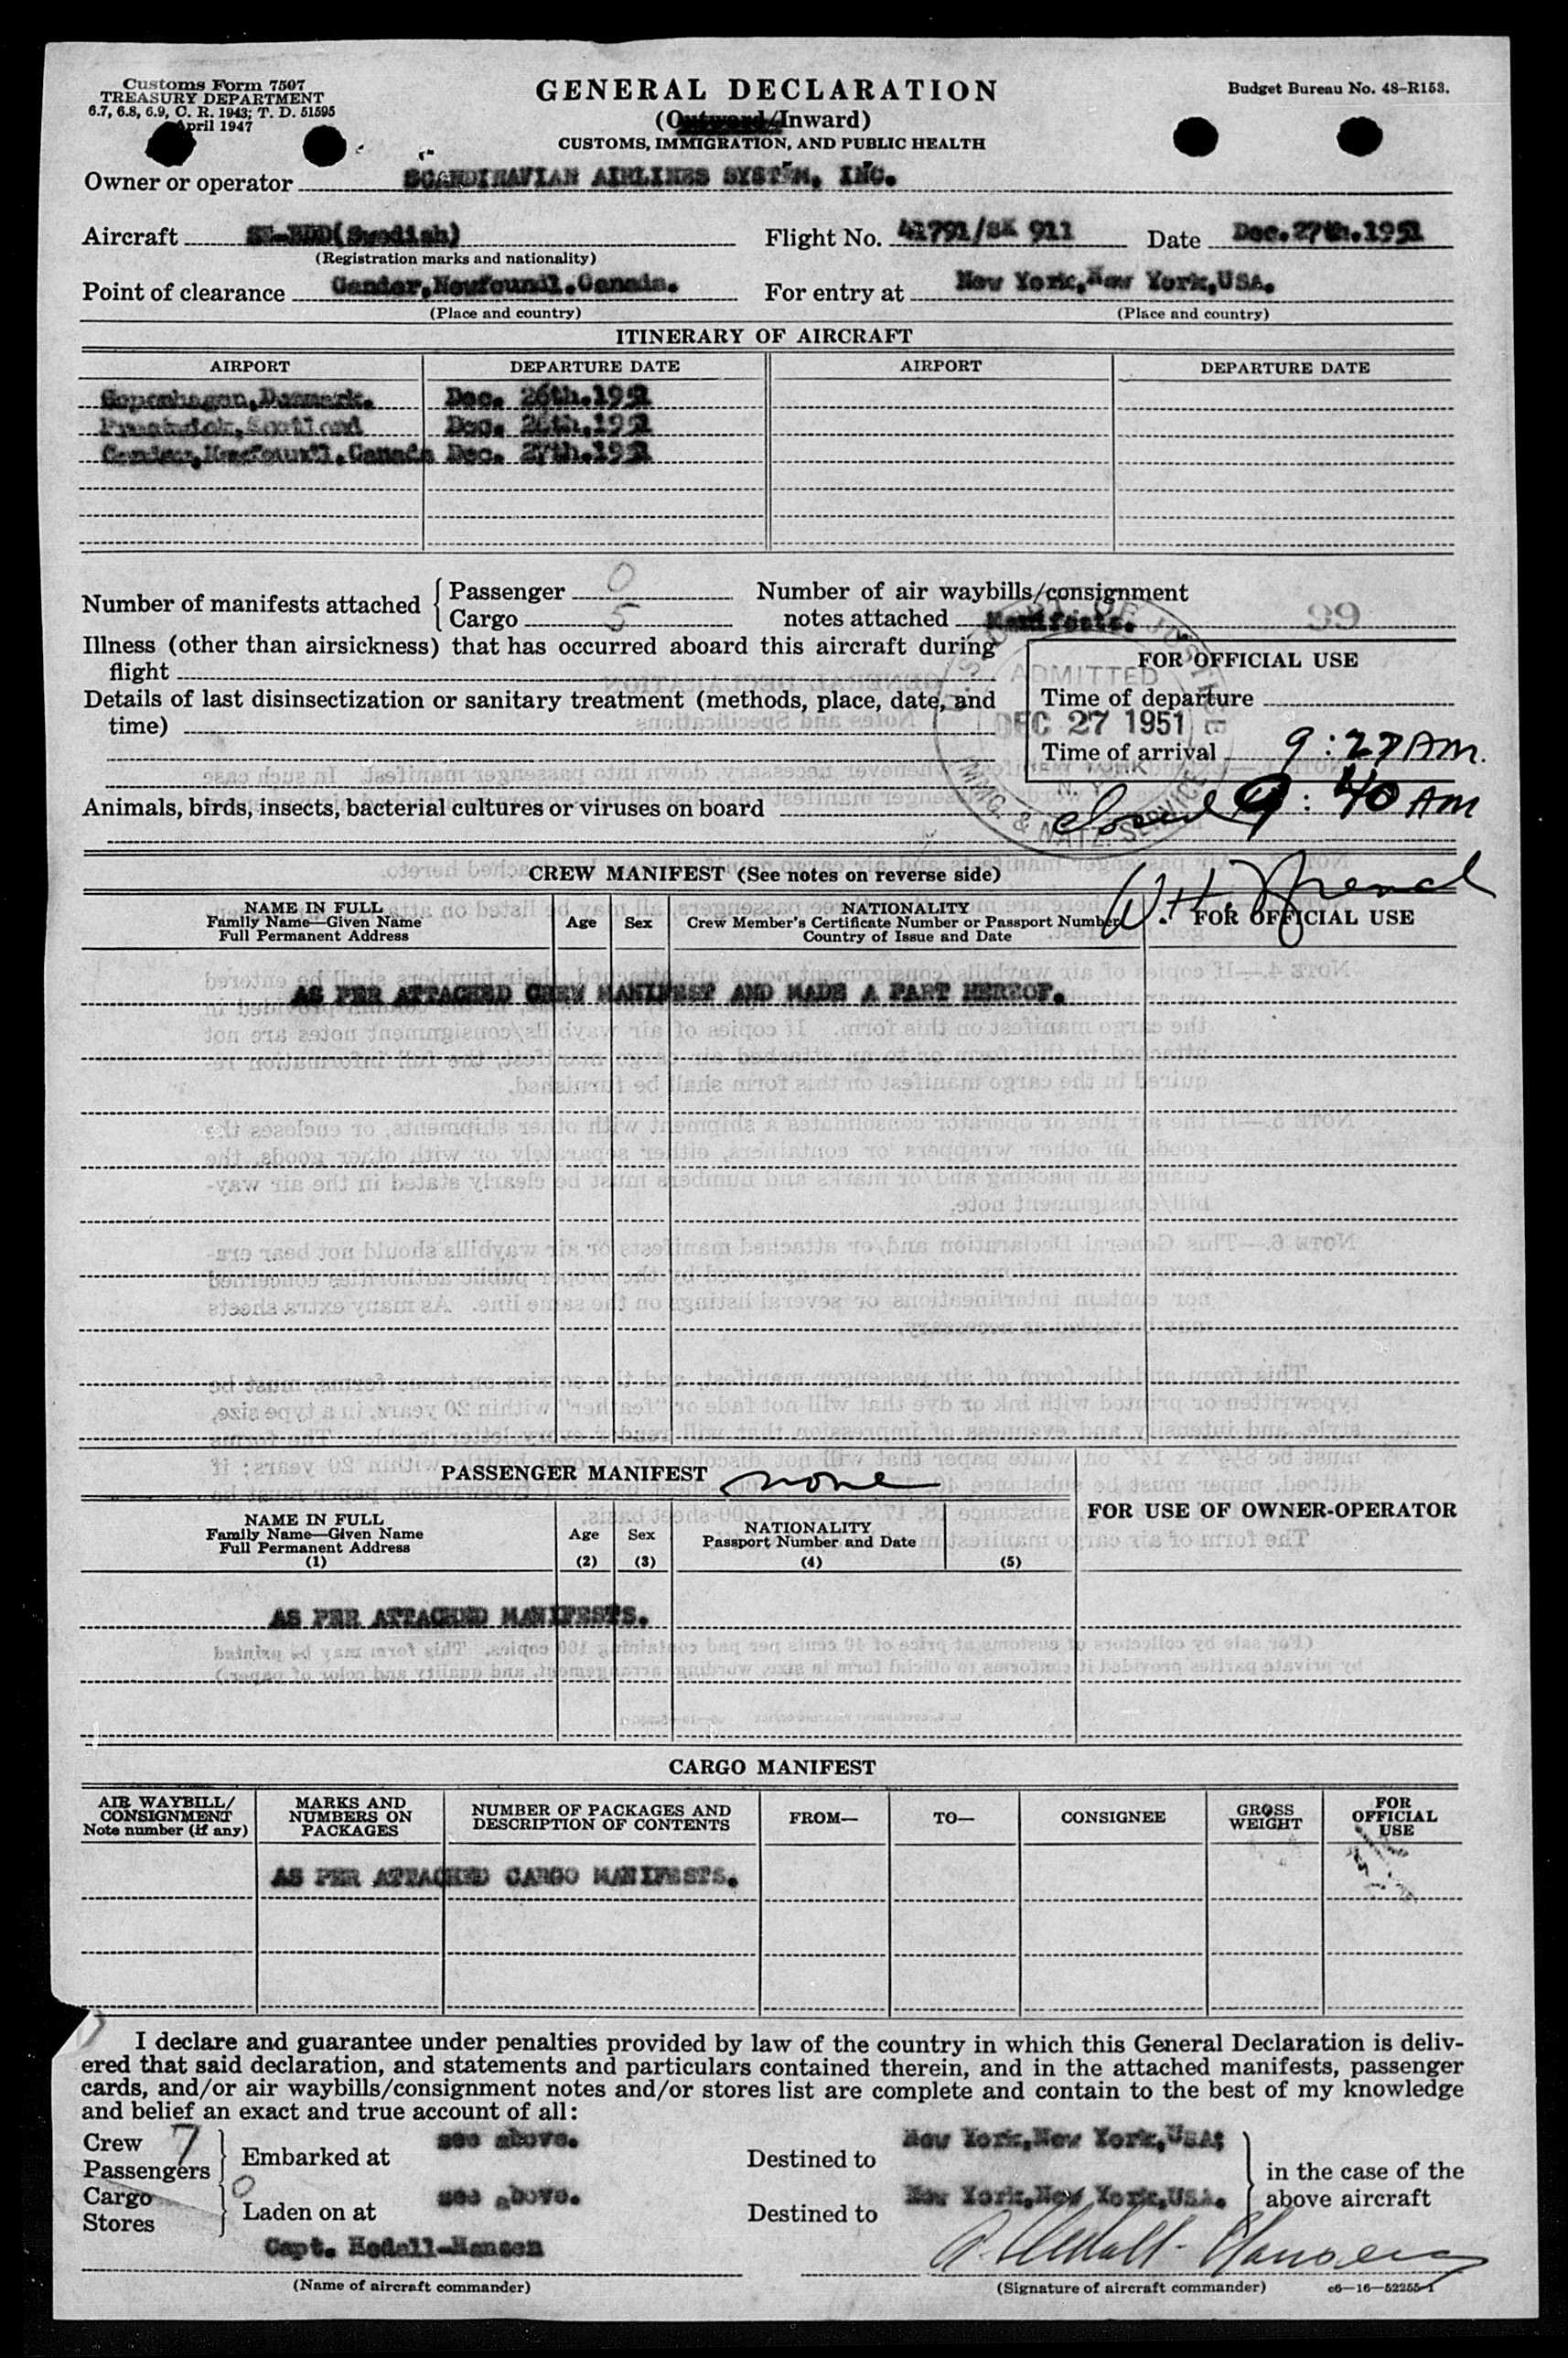 Customs Form 7507
TREASURY DEPARTMENT
6.7, 6.8, 6.9, C. R. 1943; T. D. 51595
April 1947
GENERAL DECLARATION
(Outward/Inward)
CUSTOMS, IMMIGRATION, AND PUBLIC HEALTH
Budget Bureau No. 48-R153.
Owner or operator SCANDINAVIAN AIRLINES SYSTEM, INC.
Aircraft SE-BDD(Swedish) Flight No. 41791/SK 911 Date Dec.27th.1951
(Registration marks and nationality)
Point of clearance Gander,Newfoundl.Canada. For entry at New York,New York,USA.
(Place and country) (Place and country)
ITINERARY OF AIRCRAFT
AIRPORT DEPARTURE DATE AIRPORT DEPARTURE DATE
Copenhagen,Denmark. Dec. 26th.1951
Prestwick,Scotland Dec. 26th.1951
Gander,Newfoundl.Canada Dec. 27th.1951
Number of manifests attached { Passenger 0
Cargo 5
Number of air waybills/consignment
notes attached Manifests. 99
Illness (other than airsickness) that has occurred aboard this aircraft during
flight
Details of last disinsectization or sanitary treatment (methods, place, date, and
time)
FOR OFFICIAL USE
Time of departure
Time of arrival 9:27 AM.
ADMITTED
DEC 27 1951
IMMG. & NATZ. SERVICE
9:40 AM
Animals, birds, insects, bacterial cultures or viruses on board
CREW MANIFEST (See notes on reverse side)
NAME IN FULL
Family Name—Given Name
Full Permanent Address
Age
Sex
NATIONALITY
Crew Member's Certificate Number or Passport Number
Country of Issue and Date
W. H.
FOR OFFICIAL USE
AS PER ATTACHED CREW MANIFEST AND MADE A PART HEREOF.
PASSENGER MANIFEST none
NAME IN FULL
Family Name—Given Name
Full Permanent Address
(1)
Age
(2)
Sex
(3)
NATIONALITY
Passport Number and Date
(4)
(5)
FOR USE OF OWNER-OPERATOR
AS PER ATTACHED MANIFESTS.
CARGO MANIFEST
AIR WAYBILL/
CONSIGNMENT
Note number (if any)
MARKS AND
NUMBERS ON
PACKAGES
NUMBER OF PACKAGES AND
DESCRIPTION OF CONTENTS
FROM—
TO—
CONSIGNEE
GROSS
WEIGHT
FOR
OFFICIAL
USE
AS PER ATTACHED CARGO MANIFESTS.
I declare and guarantee under penalties provided by law of the country in which this General Declaration is deliv-
ered that said declaration, and statements and particulars contained therein, and in the attached manifests, passenger
cards, and/or air waybills/consignment notes and/or stores list are complete and contain to the best of my knowledge
and belief an exact and true account of all:
Crew 7
Passengers 0
Embarked at see above. Destined to New York,New York,USA;
Cargo
Stores
Laden on at see above. Destined to New York,New York,USA.
in the case of the
above aircraft
Capt. Hedall-Hansen
(Name of aircraft commander) (Signature of aircraft commander) c6—16—52255-1